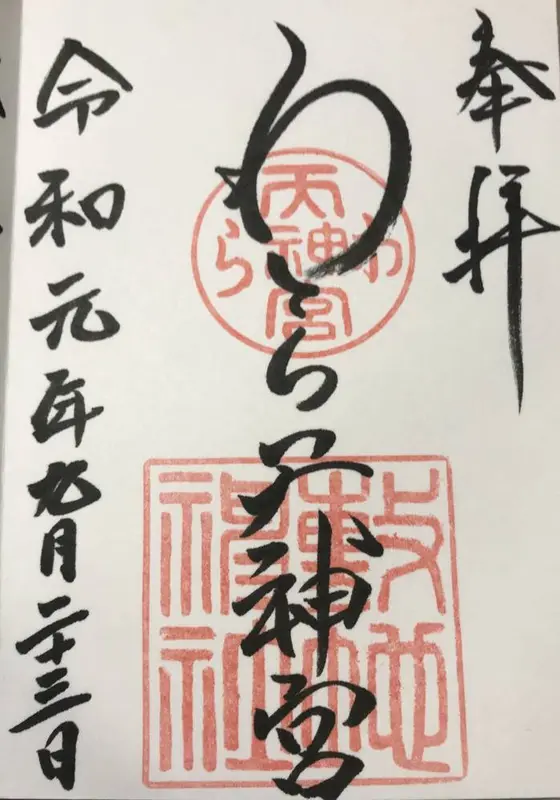 奉拝
わら天神宮
令和元年九月二十三日
わら天神宮
敷地神社